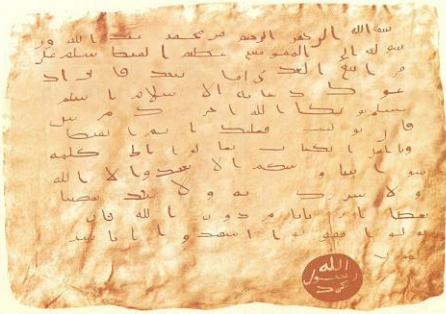 بسم الله الرحمن الرحيم من محمد عبد الله ور
سوله الى المقوقس عظيم القبط سلم على
من اتبع الهدى اما بعد فانى اد
عوك بدعاية الاسلام اسلم
تسلم يوتك الله اجرك مرتين
فان توليت فعليك اثم القبط
ويا اهل الكتاب تعالوا الى كلمة
سوا بيننا وبينكم الا نعبد الا الله
ولا نشرك به ولا يتخذ بعضنا
بعضا اربابا من دون الله فان
تولوا فقولوا اشهدوا بانا مسلم
ون
الله
رسول
محمد